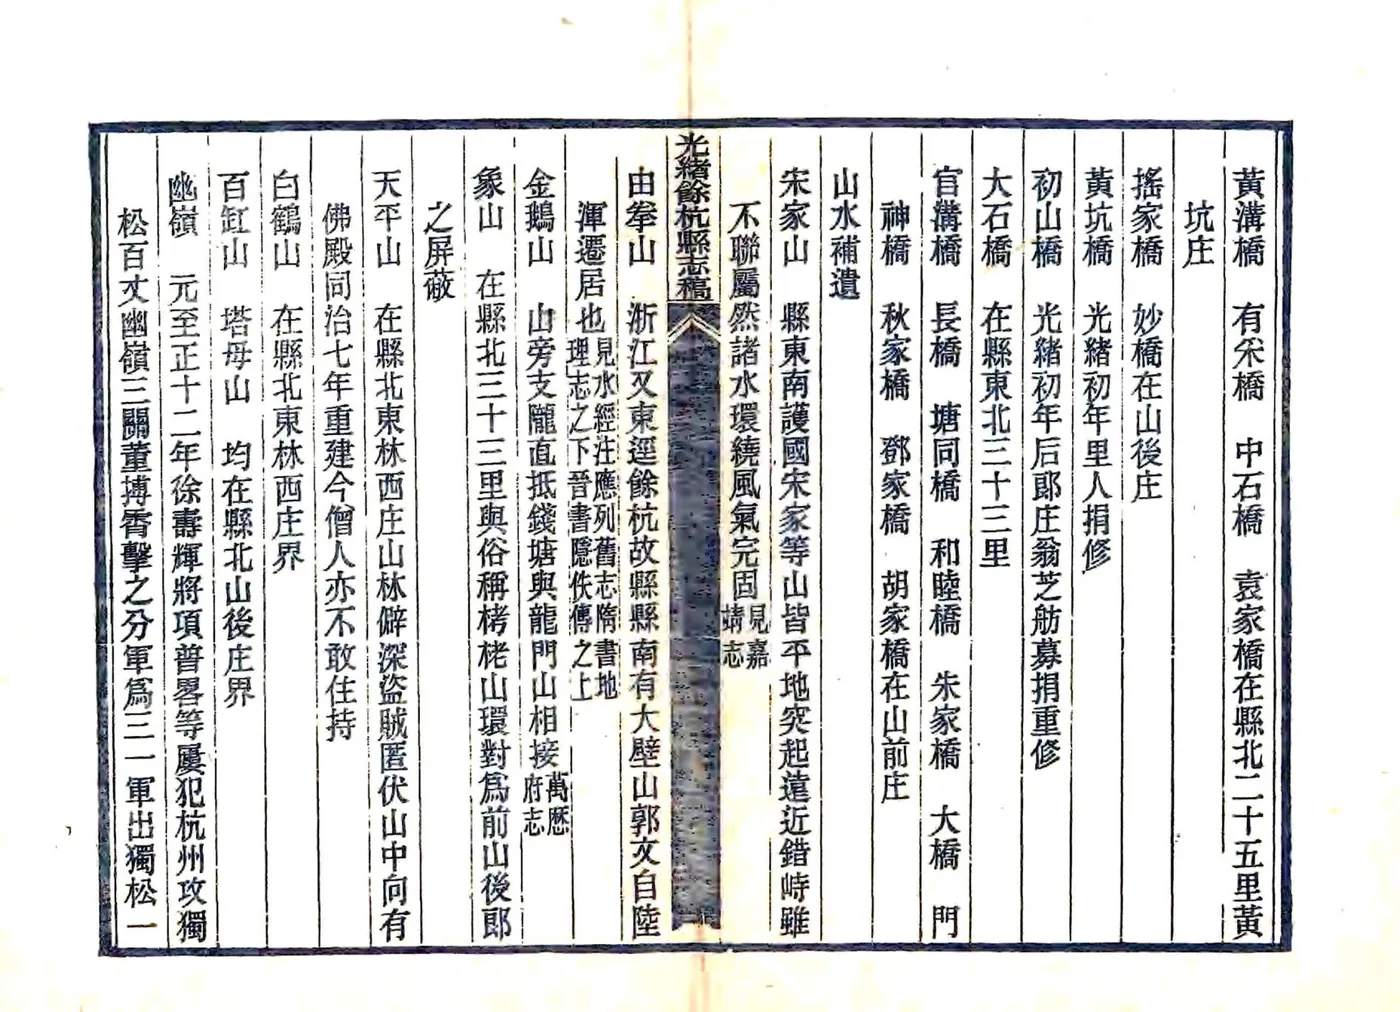 黃溝橋　有釆橋　中石橋　袁家橋在縣北二十五里黃
坑庄
搖家橋　妙橋在山後庄
黃坑橋　光緒初年里人捐修
初山橋　光緒初年后郎庄翁芝舫募捐重修
大石橋　在縣東北三十三里
官溝橋　長橋　塘同橋　和睦橋　朱家橋　大橋　門
神橋　秋家橋　鄧家橋　胡家橋在山前庄
山水補遺
宋家山　縣東南護國宋家等山皆平地突起遠近錯峙雖
不聯屬然諸水環繞風氣完固見嘉靖志
光緒餘杭縣志稿
由拳山　浙江又東逕餘杭故縣縣南有大壁山郭文自陸
渾遷居也見水經注應列舊志隋書地理志之下晉書隱佚傳之上
金鵝山　山旁支隴直抵錢塘與龍門山相接萬歷府志
象山　在縣北三十三里與俗稱栲栳山環對爲前山後郎
之屏蔽
天平山　在縣北東林西庄山林僻深盜賊匿伏山中向有
佛殿同治七年重建今僧人亦不敢住持
白鶴山　在縣北東林西庄界
百缸山　塔母山　均在縣北山後庄界
幽嶺　元至正十二年徐壽輝將項普畧等屢犯杭州攻獨
松百丈幽嶺三關董摶霄擊之分軍爲三一軍出獨松一